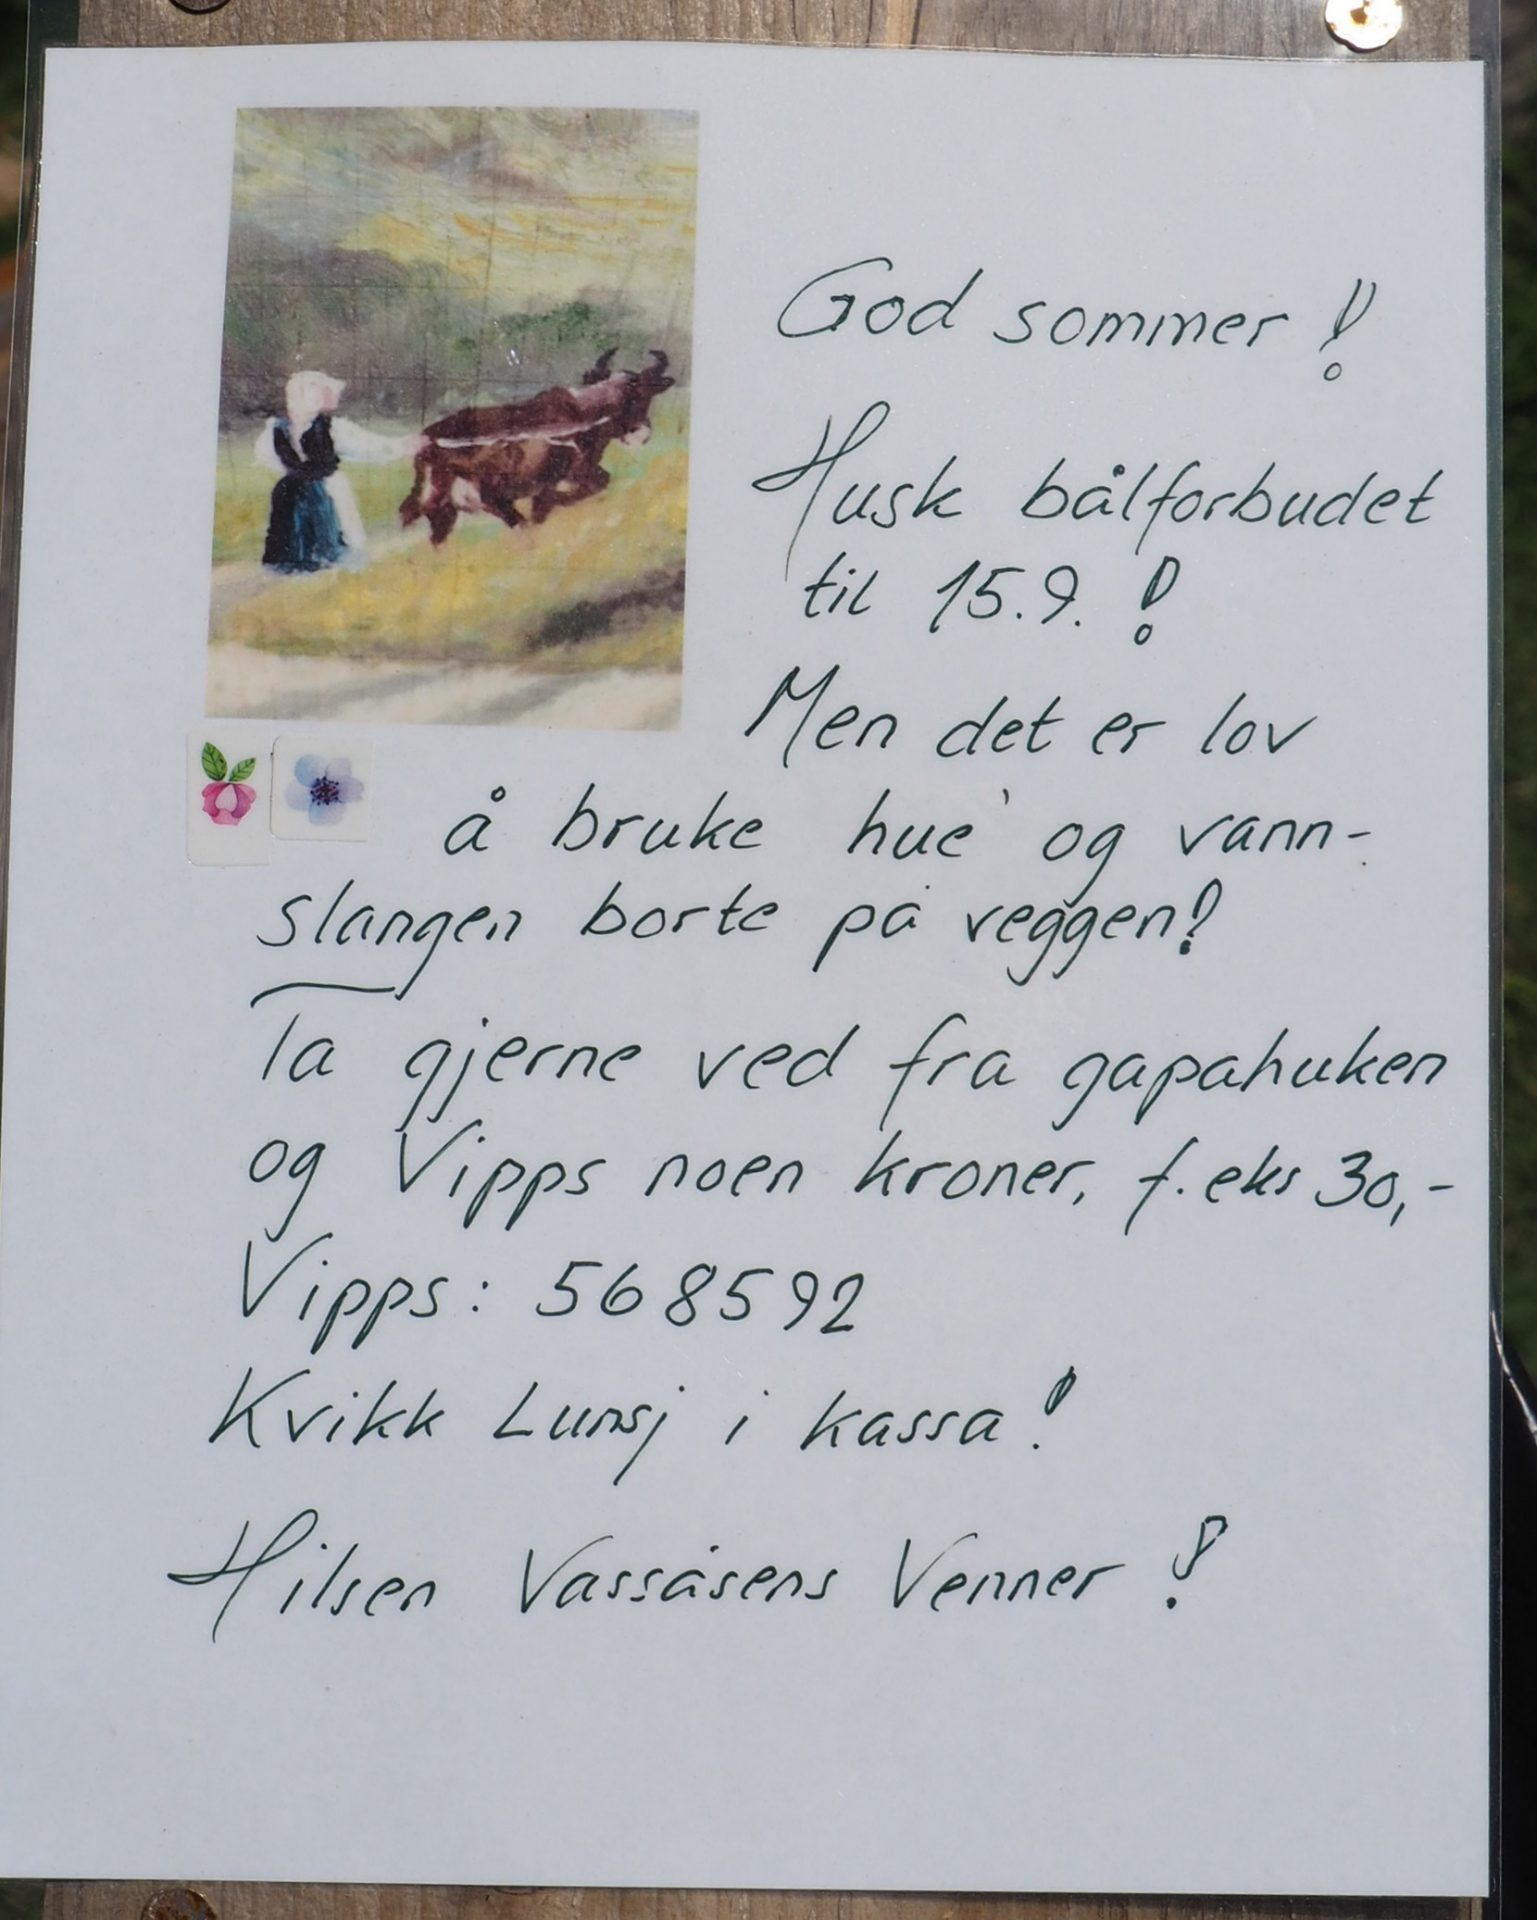 God sommer!
Husk bålforbudet
til 15.9.!
Men det er lov
å bruke hue og vann-
slangen borte på veggen!
Ta gjerne ved fra gapahuken
og Vipps noen kroner, f.eks 30,-
Vipps: 568592
Kvikk Lunsj i kassa!
Hilsen Vassåsens Venner!